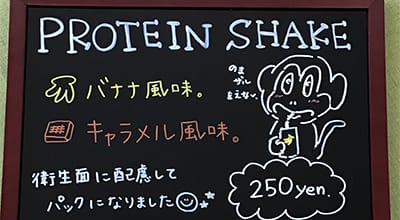 PROTEIN SHAKE
バナナ風味。
キャラメル風味。
のま
ざる
をえない。
衛生面に配慮して
パックになりました
250yen.